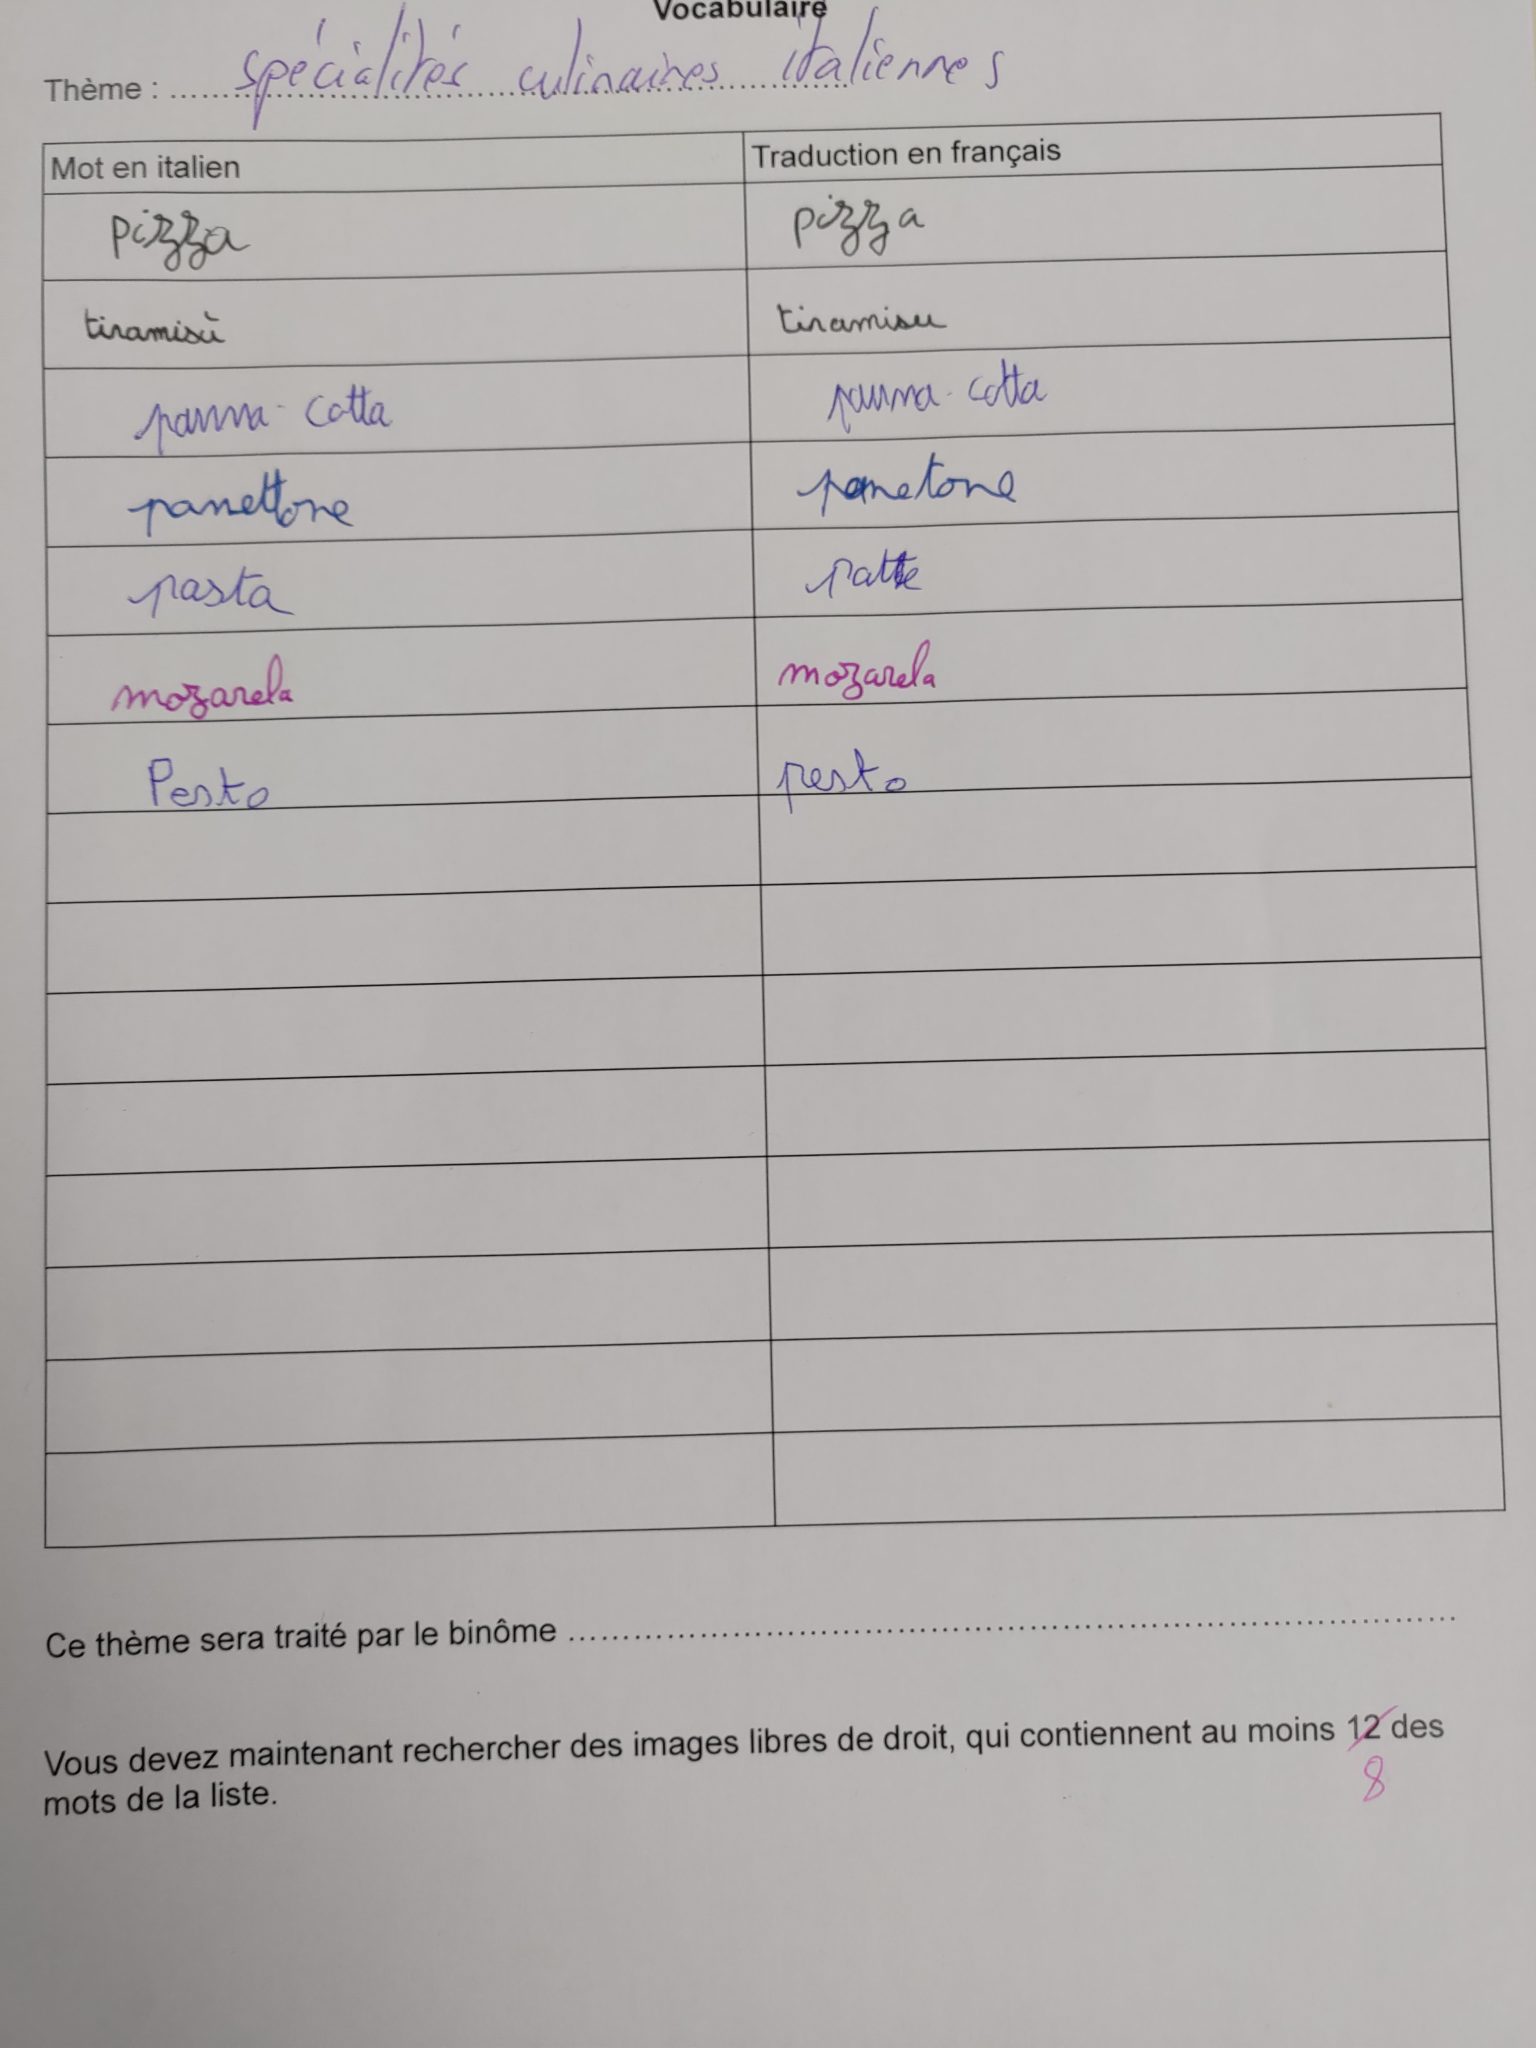 Vocabulaire
Thème : spécialités culinaires italiennes
Mot en italien Traduction en français
pizza pizza
tiramisù tiramisu
panna-cotta panna-cotta
panettone panetone
pasta patte
mozarela mozarela
Pesto pesto
Ce thème sera traité par le binôme
Vous devez maintenant rechercher des images libres de droit, qui contiennent au moins 12 des
8
mots de la liste.